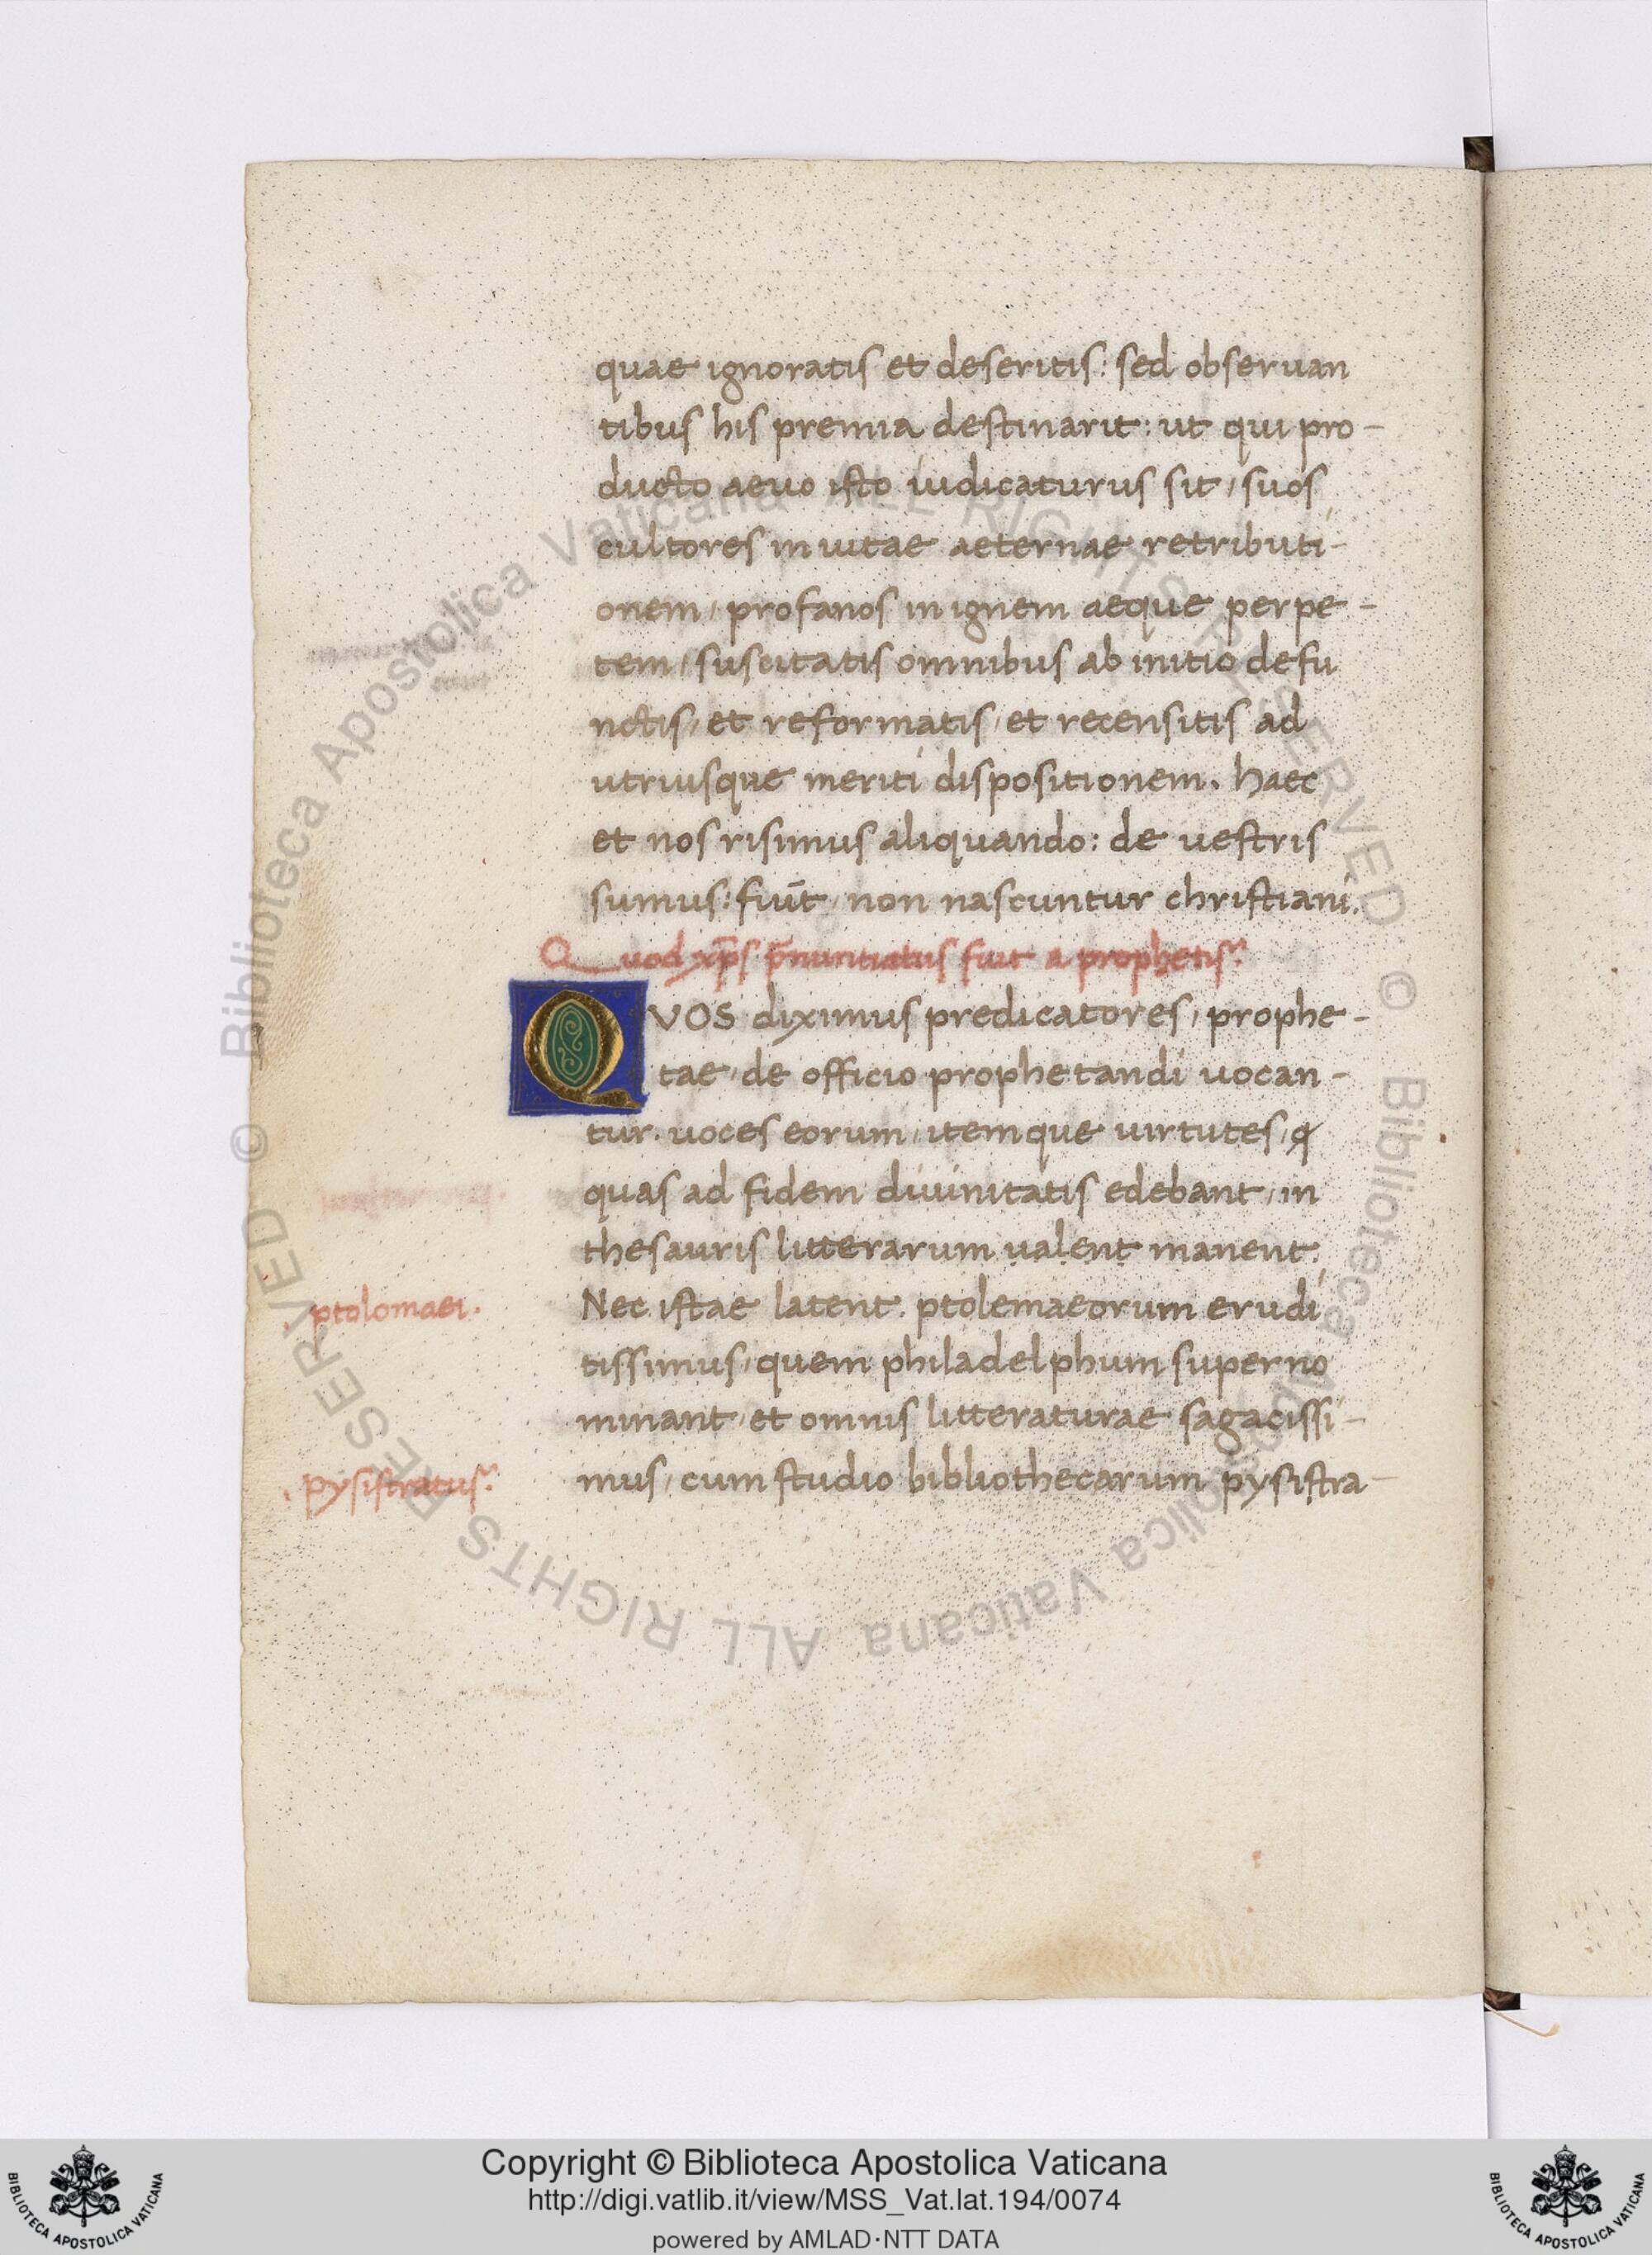 quae ignoratis et deseritis: sed obseruan
tibus his premia destinarit: ut qui pro-
ducto aeuo isto iudicaturus sit, suos
cultores in uitae aeternae retributi-
onem, profanos in ignem aeque perpe-
tem, suscitatis omnibus ab initio defu
nctis, et reformatis, et recensitis ad
utriusque meriti dispositionem. haec
et nos risimus aliquando: de uestris
sumus: fiūt, non nascuntur christiani.
Quod xp̄s p̄nuntiatus fuit a prophetis.
QVOS diximus predicatores, prophe-
tae, de officio prophetandi uocan-
tur. uoces eorum, itemque uirtutes, q
quas ad fidem diuinitatis edebant, in
thesauris litterarum ụaḷeṇṭ manent.
ptolomaei.
Nec istae latent. ptolemaeorum erudi
tissimus, quem philadelphum superno
minant, et omnis litteraturae sagacissi-
pysistratus.
mus, cum studio bibliothecarum pysistra-
© Biblioteca Apostolica Vaticana ALL RIGHTS RESERVED © Biblioteca Apostolica Vaticana ALL RIGHTS RESERVED
Copyright © Biblioteca Apostolica Vaticana
http://digi.vatlib.it/view/MSS_Vat.lat.194/0074
powered by AMLAD·NTT DATA
BIBLIOTECA APOSTOLICA VATICANA
BIBLIOTECA APOSTOLICA VATICANA